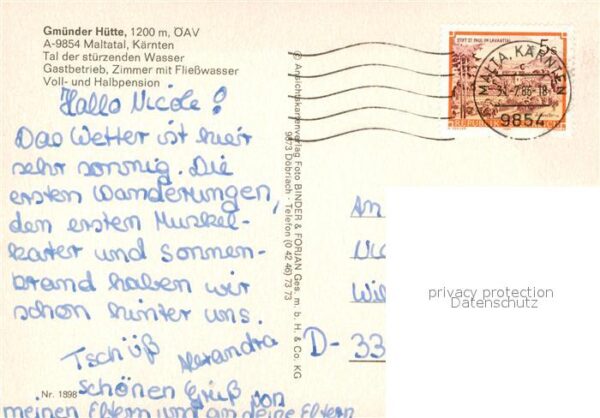 Gmünder Hütte, 1200 m, ÖAV
A-9854 Maltatal, Kärnten
Tal der stürzenden Wasser
Gastbetrieb, Zimmer mit Fließwasser
Voll- und Halbpension
Hallo Nicole!
Das Wetter ist hier
sehr sonnig. Die
ersten Wanderungen,
den ersten Muskel-
kater und Sonnen-
brand haben wir
schon hinter uns.
Tschüß Alexandra
schönen Gruß von
meinen Eltern und an deine Eltern
Nr. 1898
© Ansichtskartenverlag Foto BINDER & FORJAN Ges. m. b. H. & Co. KG
9873 Döbriach · Telefon (0 42 46) 73 73
STIFT ST. PAUL IM LAVANTTAL
5s
MALTA, KÄRNTEN
86-18
9854
An
D- 33
privacy protection
Datenschutz